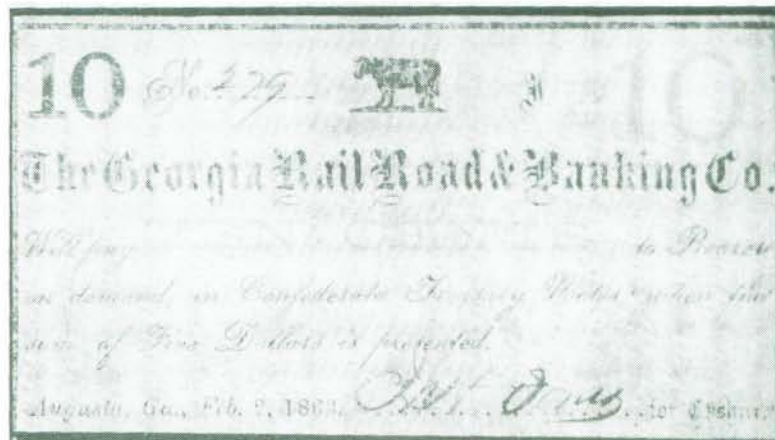 10 No. 279 10
The Georgia Rail Road & Banking Co.
Will pay to Bearer
on demand, in Confederate Treasury Notes when the
sum of Five Dollars is presented.
Augusta, Ga., Feb. 2, 1863. for Cashier